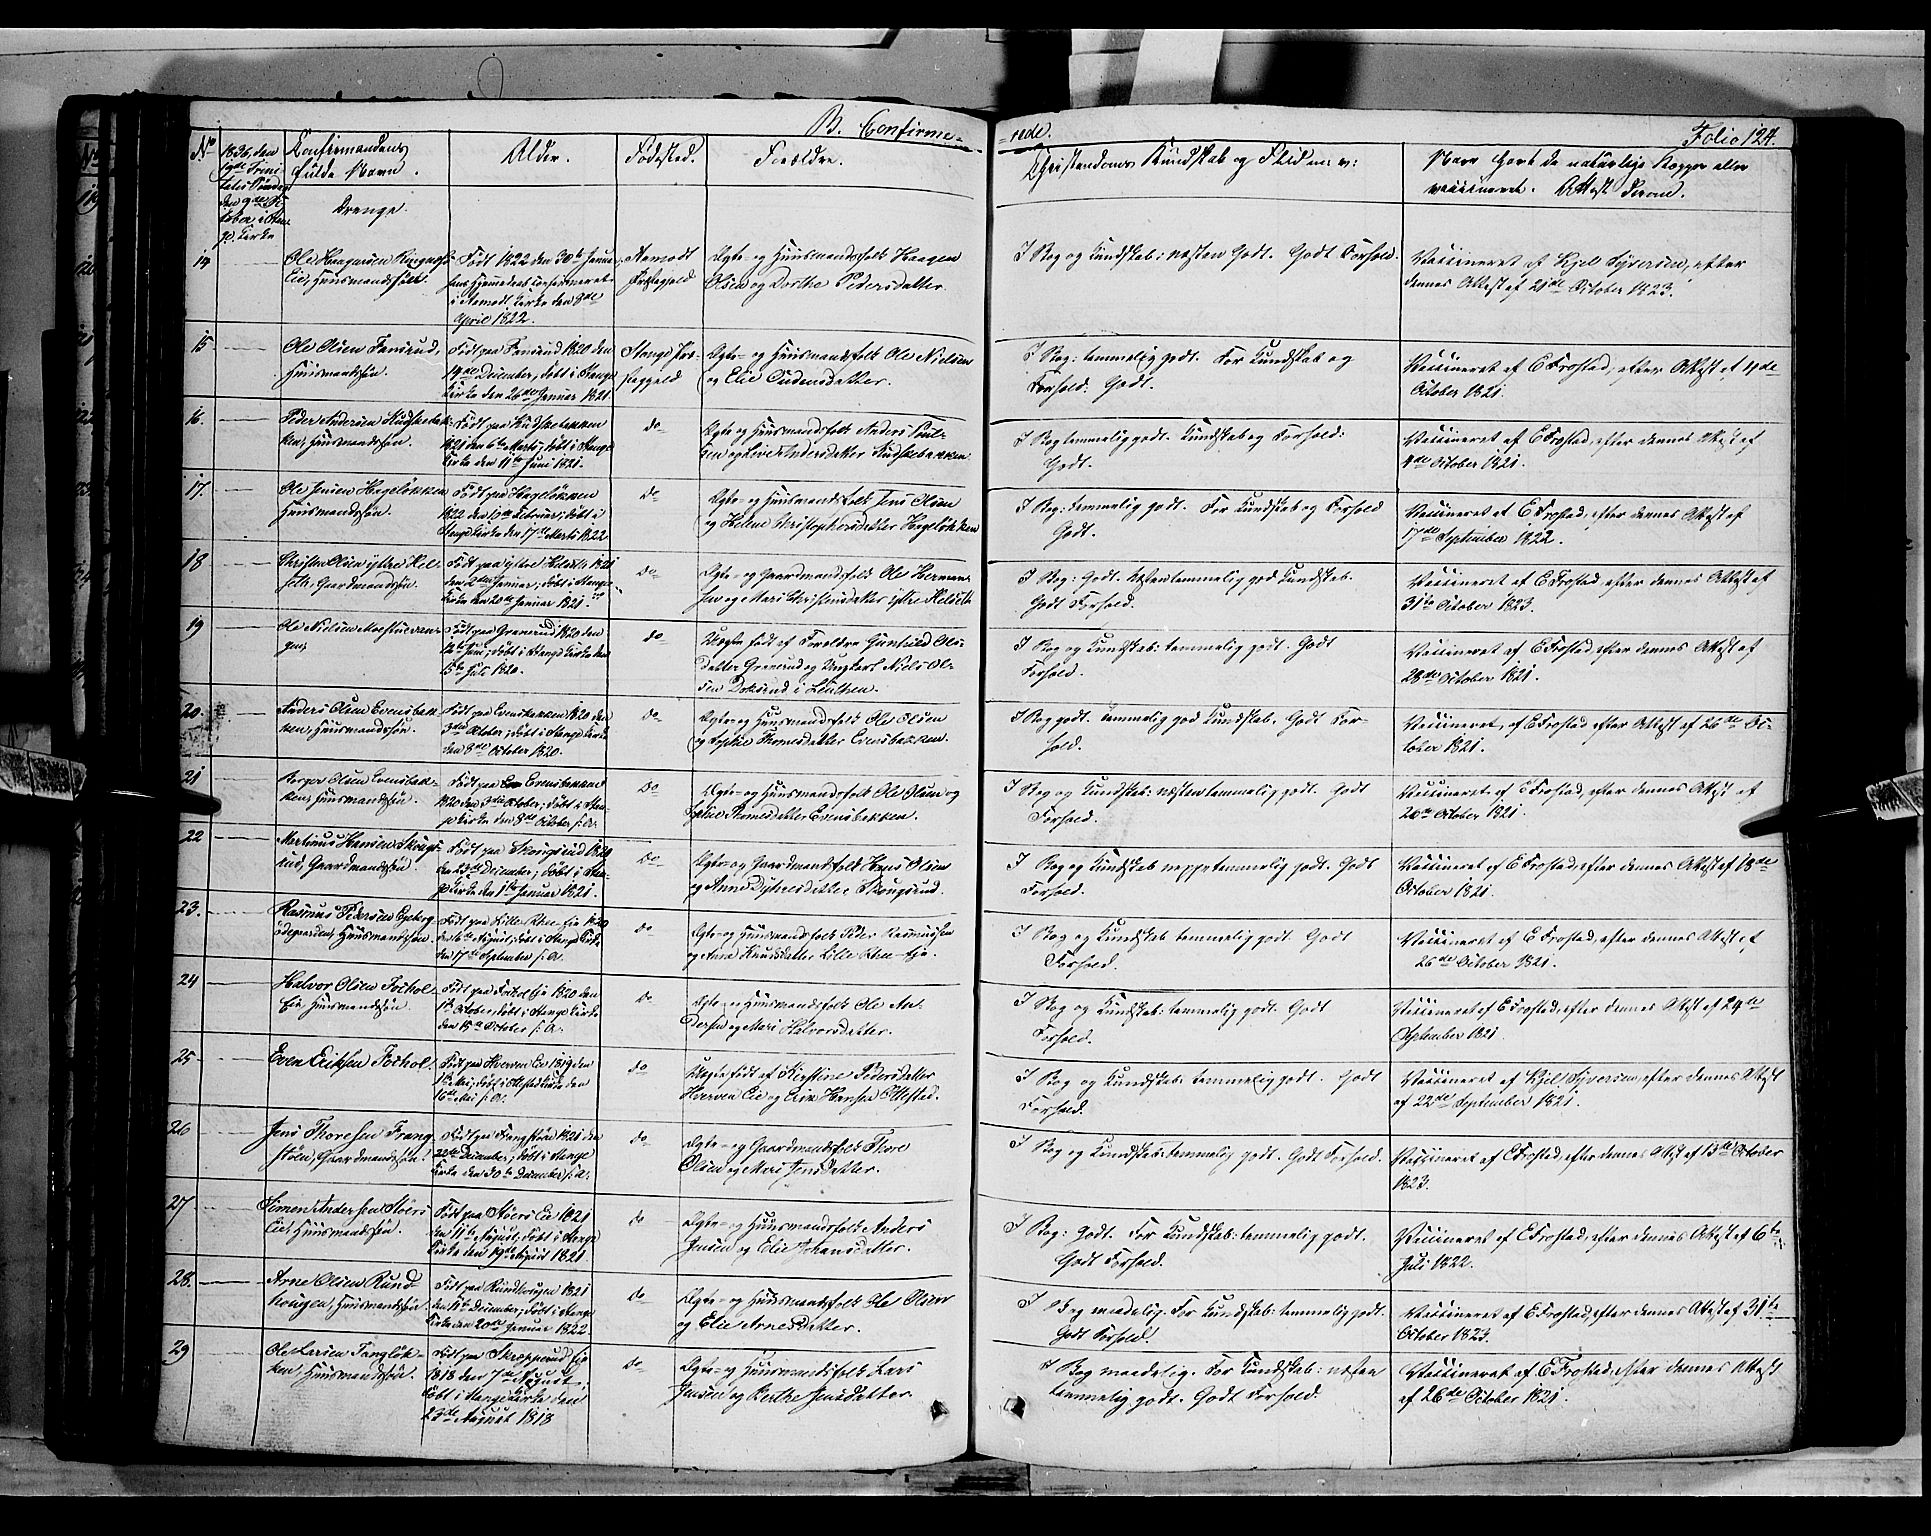 B. Confirme-
-rede.
Folio 124.
No
1836, den
Confirmandens
fulde Navn.
Drenge.
Alder.
Fødested.
Forældre.
Christendoms Kundskab og Flid m. v:
Naar havt de naturlige Kopper eller
vaccineret. Attest derom.
14
Eie, Huusmandssøn.
Født 1822 den 30te Janua-
i Aamodt Kirke den 8de
April 1822.
Aamodt
Præstegjeld
Ægte- og Huusmandsfolk Haagen
Olsen og Dorthe Pedersdatter.
I Bog og Kundskab: næsten Godt. Godt Forhold.
Vaccineret af Kjel Syversen, efter
dennes Attest af 21de October 1823.
15
Ole Olsen Fansrud,
Huusmandssøn.
Født paa Fansrud 1820 den
14de December, døbt i Stange
Kirke den 26de Januar 1821.
Ægte- og Huusmandsfolk Ole Nielsen
I Bog: temmelig godt. For Kundskab og
Forhold. Godt.
Vaccineret af E Frostad, efter Attest af 4de
October 1821.
16.
Huusmandssøn.
1821 den 6te Marts; døbt i Stange
Kirke den 11te Juni 1821.
do
Ægte og Huusmandsfolk Anders Poul-
I Bog temmelig godt. Kundskab og Forhold:
Godt.
Vaccineret af E Frostad, efter dennes Attest af
4de October 1821.
17.
Ole Jensen Hageløkken
Huusmandssøn.
Født paa Hageløkken
Stange Kirke den 17de Marts 1822
do
Ægte- og Huusmandsfolk Jens Olsen
og Helene Christophersdatter Hageløkken
I Bog: temmelig godt. For Kundskab og Forhold
Godt.
Vaccineret af E Frostad, efter dennes Attest af
17de September 1822.
18
Gaardmandssøn.
den 2den Januar, døbt i Stange
Kirke den 20de Januar 1821.
do
Ægte- og Gaardmandsfolk Ole Herman-
sen og Mari Christensdatter ytre Helseth
I Bog: Godt. Næsten temmelig god Kundskab.
Godt Forhold.
Vaccineret af E Frostad, efter dennes Attest af
31te October 1823.
19
Født paa Grønerud 1820 den
Juli 1820.
do
Uægte født af Forældre Gunhild Ols-
datter Grønerud og Ungkarl Niels Ol-
sen
I Bog og Kundskab: temmelig godt. Godt
Forhold.
Vaccineret af E Frostad, efter dennes Attest af
28de October 1821.
20
Anders Olsen Evensbak-
ken, Huusmandssøn.
Født paa Evensbakken 1820 den
3die October, døbt i Stange Kirke
den 8de October 1820.
do
Ægte- og Huusmandsfolk Ole Olsen
Thomesdatter Evensbakken.
I Bog godt. temmelig god Kundskab. Godt For-
hold.
Vaccineret, af E Frostad efter Attest af 26de Oc-
tober 1821.
21
Olsen Evensbak-
ken, Huusmandssøn.
Født paa Evensbakken
1820 den 3die October; døbt i Stan-
ge Kirke den 8de October s. A.
do
Ægte- og Huusmandsfolk Ole Olsen og
Thomesdatter Evensbakken.
I Bog og Kundskab: næsten temmelig godt. Godt
Forhold.
Vaccineret af E Frostad, efter dennes Attest af
26de October 1821.
22
Martinus Hansen Skougs-
rud, Gaardmandssøn.
Født paa Skougsrud 1820
den 23de December, døbt i Stan-
ge Kirke den 1te Januar 1821.
do
Ægte- og Gaardmandsfolk Hans Olsen
Skougsrud.
I Bog og Kundskab neppe temmelig godt. Godt
Forhold.
Vaccineret af E Frostad, efter dennes Attest af 18de
October 1821.
23.
Rasmus Pedersen
Huusmandssøn.
den 17de September s. A.
do
Ægte- og Huusmandsfolk Peder Rasmussen
og Anne Knudsdatter Lille
I Bog og Kundskab temmelig godt. Godt
Forhold.
Vaccineret af E Frostad, efter dennes Attest af
26de October 1821.
24
Halvor Olsen Fochol-
Eie Huusmandssøn.
Født paa Fochol Eje 1820 den
October, døbt i Stange Kirke
den 15de October s. A.
do
Ægte- og Huusmandsfolk Ole An-
dersen og Mari Halvorsdatter.
I Bog og Kundskab: temmelig godt. Godt
Forhold.
Vaccineret af E Frostad, efter dennes Attest af 24de
September 1821.
25
Even Eriksen Fochol.
Født paa Hverven Eie 1819 den
16de Mai s. A.
do
Uægte født af Kirstine Pedersdatter
Hverven Eie og Erik Hansen Ottestad.
I Bog og Kundskab: temmelig godt. Godt
Forhold.
Vaccineret af Kjel Syversen, efter dennes Attest
af 22de September 1821.
26
Jens Thoresen Frang-
støen, Gaardmandssøn.
Født paa Frangstøen 1821 den
22de December; døbt i Stange
Kirke den 30te December s. A.
do
Ægte- og Gaardmandsfolk Thore
Olsen og Mari Jensdatter.
I Bog og Kundskab: temmelig godt. Godt Forhold.
Vaccineret af E Frostad, efter dennes Attest af 13de October
1823.
27
Simen Andersen Støers
Eie, Huusmandssøn.
Født paa Støers Eie 1821
den 11te August, døbt i Stange
Kirke den 19de August 1821
do
Ægte- og Huusmandsfolk Anders
Jensen og Elie Johansdatter.
I Bog: Godt. For Kundskab: temmelig godt.
Godt Forhold.
Vaccineret af E Frostad, efter dennes Attest af 6te
Juli 1822.
28.
Arne Olsen Rund-
hougen, Huusmandssøn.
Født paa Rundhougen 1821
den 11te December; døbt i Stange
Kirke den 20de Januar 1822
do
Ægte- og Huusmandsfolk Ole Olsen
og Elie Arnesdatter.
I Bog maadelig. For Kundskab: temmelig godt.
Godt Forhold.
Vaccineret af E Frostad, efter dennes Attest af 31te
October 1823.
29
Ole Larsen Tangløk-
ken, Huusmandssøn.
Født paa Skrepperud Eje
1818 den 7de August.
Døbt i Stange Kirke den
23de August 1818
do
Ægte- og Huusmandsfolk Lars
Jensen og Berthe Jensdatter.
I Bog maadelig. For Kundskab: næsten
temmelig godt. Godt Forhold.
Vaccineret af E Frostad, efter dennes Attest
af 26de October 1821.